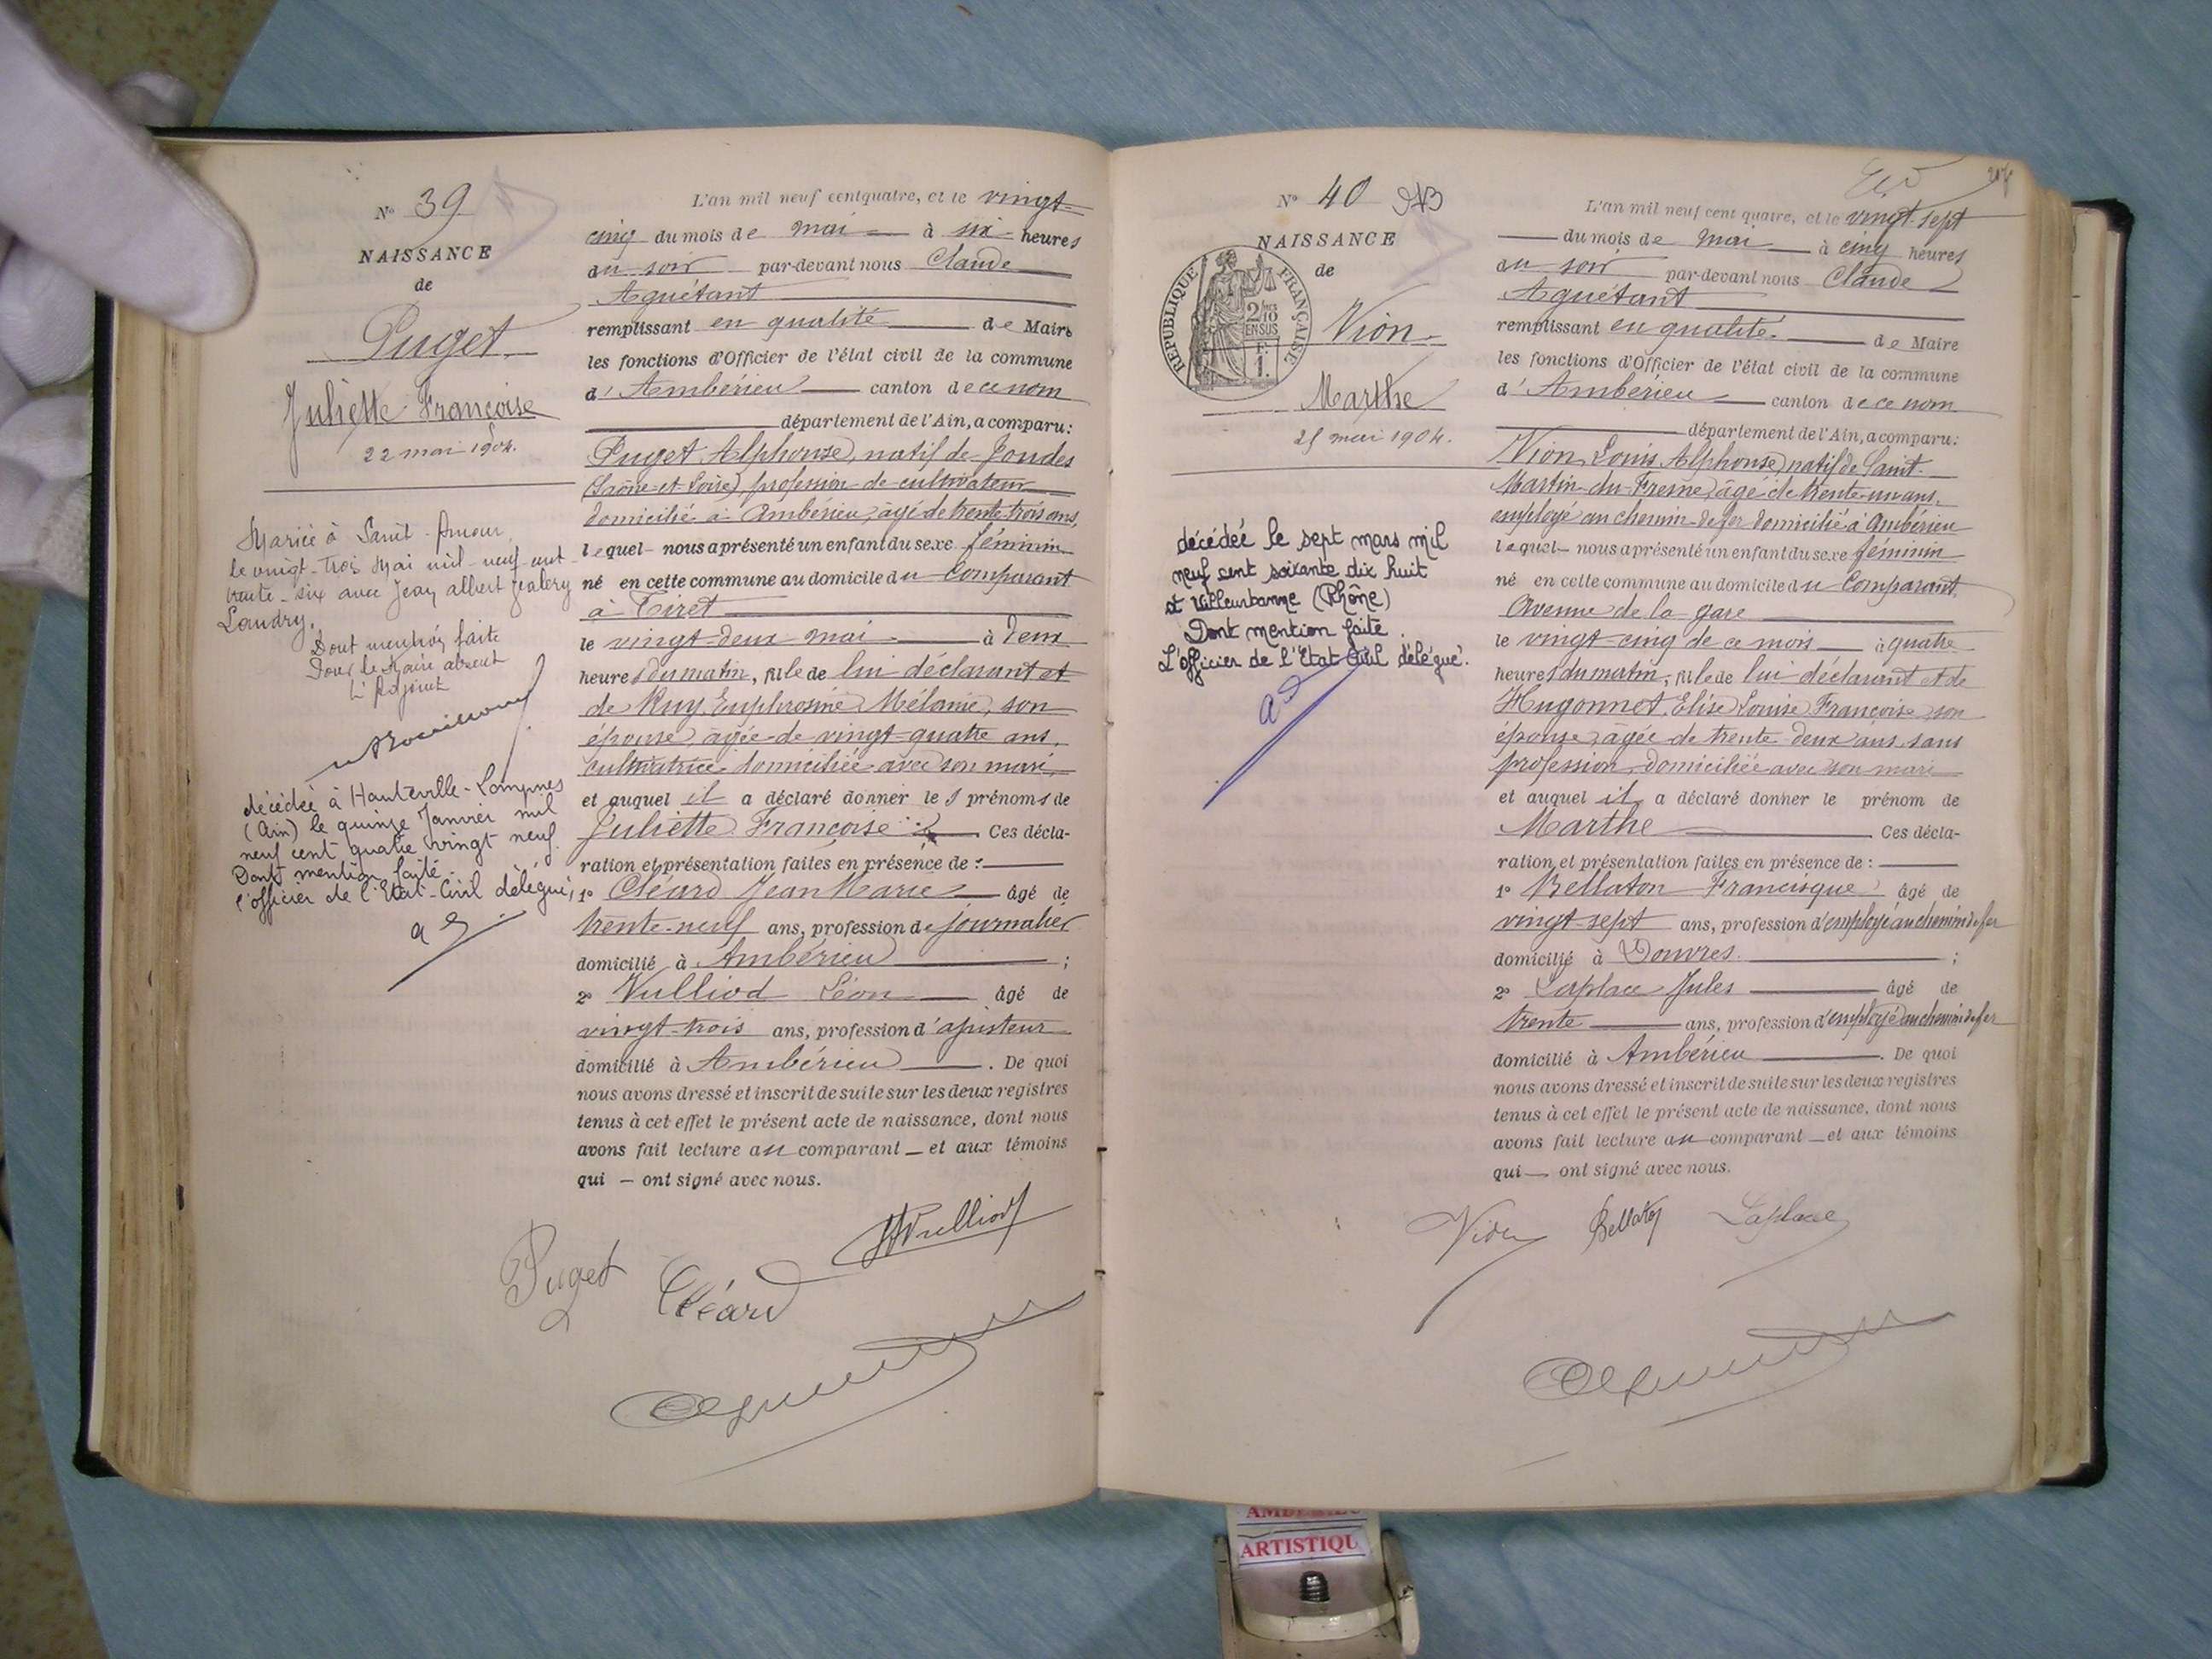 N° 39
NAISSANCE
de
Puget
Juliette Françoise
22 mai 1904.
Mariée à Saint-Amour,
le vingt-trois Mai mil-neuf cent
trente-six avec Jean Albert
Landry.
Dont mention faite
Pour le Maire absent
L'Adjoint
décédée à Hauteville-Lompnes
(Ain) le quinze Janvier mil
neuf cent quatre vingt neuf.
Dont mention faite.
l'officier de l'Etat-Civil délégué,
L'an mil neuf cent quatre, et le vingt-
cinq du mois de mai à six heures
du soir par-devant nous Claude
Aguétant
remplissant en qualité de Maire
les fonctions d'Officier de l'état civil de la commune
d'Ambérieu canton de ce nom
département de l'Ain, a comparu:
Puget Alphonse, natif de Joudes
(Saône-et-Loire), profession de cultivateur
domicilié à Ambérieu, âgé de trente-trois ans,
lequel nous a présenté un enfant du sexe féminin
né en cette commune au domicile du Comparant
à Tiret
le vingt-deux mai à deux
heures du matin, fille de lui déclarant et
de Ruy Euphrosine Mélanie, son
épouse, âgée de vingt-quatre ans,
cultivatrice domiciliée avec son mari,
et auquel il a déclaré donner les prénoms de
Juliette Françoise. Ces décla-
ration et présentation faites en présence de :
1° Cléard Jean Marie âgé de
trente-neuf ans, profession de journalier
domicilié à Ambérieu ;
2° Vulliod Léon âgé de
vingt-trois ans, profession d'ajusteur
domicilié à Ambérieu. De quoi
nous avons dressé et inscrit de suite sur les deux registres
tenus à cet effet le présent acte de naissance, dont nous
avons fait lecture au comparant et aux témoins
qui ont signé avec nous.
Vulliod
Puget Cléard
N° 40
NAISSANCE
de
RÉPUBLIQUE FRANÇAISE
2/10
EN SUS
F.
1.
Vion
Marthe
25 mai 1904.
décédée le sept mars mil
neuf cent soixante dix huit
à Villeurbanne (Rhône)
Dont mention faite.
L'officier de l'Etat Civil délégué.
L'an mil neuf cent quatre, et le vingt-sept
du mois de mai à cinq heures
du soir par-devant nous Claude
Aguétant
remplissant en qualité de Maire
les fonctions d'Officier de l'état civil de la commune
d'Ambérieu canton de ce nom
département de l'Ain, a comparu:
Vion Louis Alphonse, natif de Saint-
Martin-du-Fresne, âgé de trente-un ans,
employé au chemin-de-fer domicilié à Ambérieu
lequel nous a présenté un enfant du sexe féminin
né en cette commune au domicile du Comparant,
Avenue de la gare
le vingt-cinq de ce mois à quatre
heures du matin, fille de lui déclarant et de
Hugonnet Elise Louise Françoise son
épouse, âgée de trente-deux ans, sans
profession, domiciliée avec son mari
et auquel il a déclaré donner le prénom de
Marthe. Ces décla-
ration et présentation faites en présence de :
1° Bellaton Francisque âgé de
vingt-sept ans, profession d'employé au chemin de fer
domicilié à Douvres ;
2° Laplace Jules âgé de
trente ans, profession d'employé au chemin de fer
domicilié à Ambérieu. De quoi
nous avons dressé et inscrit de suite sur les deux registres
tenus à cet effet le présent acte de naissance, dont nous
avons fait lecture au comparant et aux témoins
qui ont signé avec nous.
Vion Bellaton Laplace
ARTISTIQU